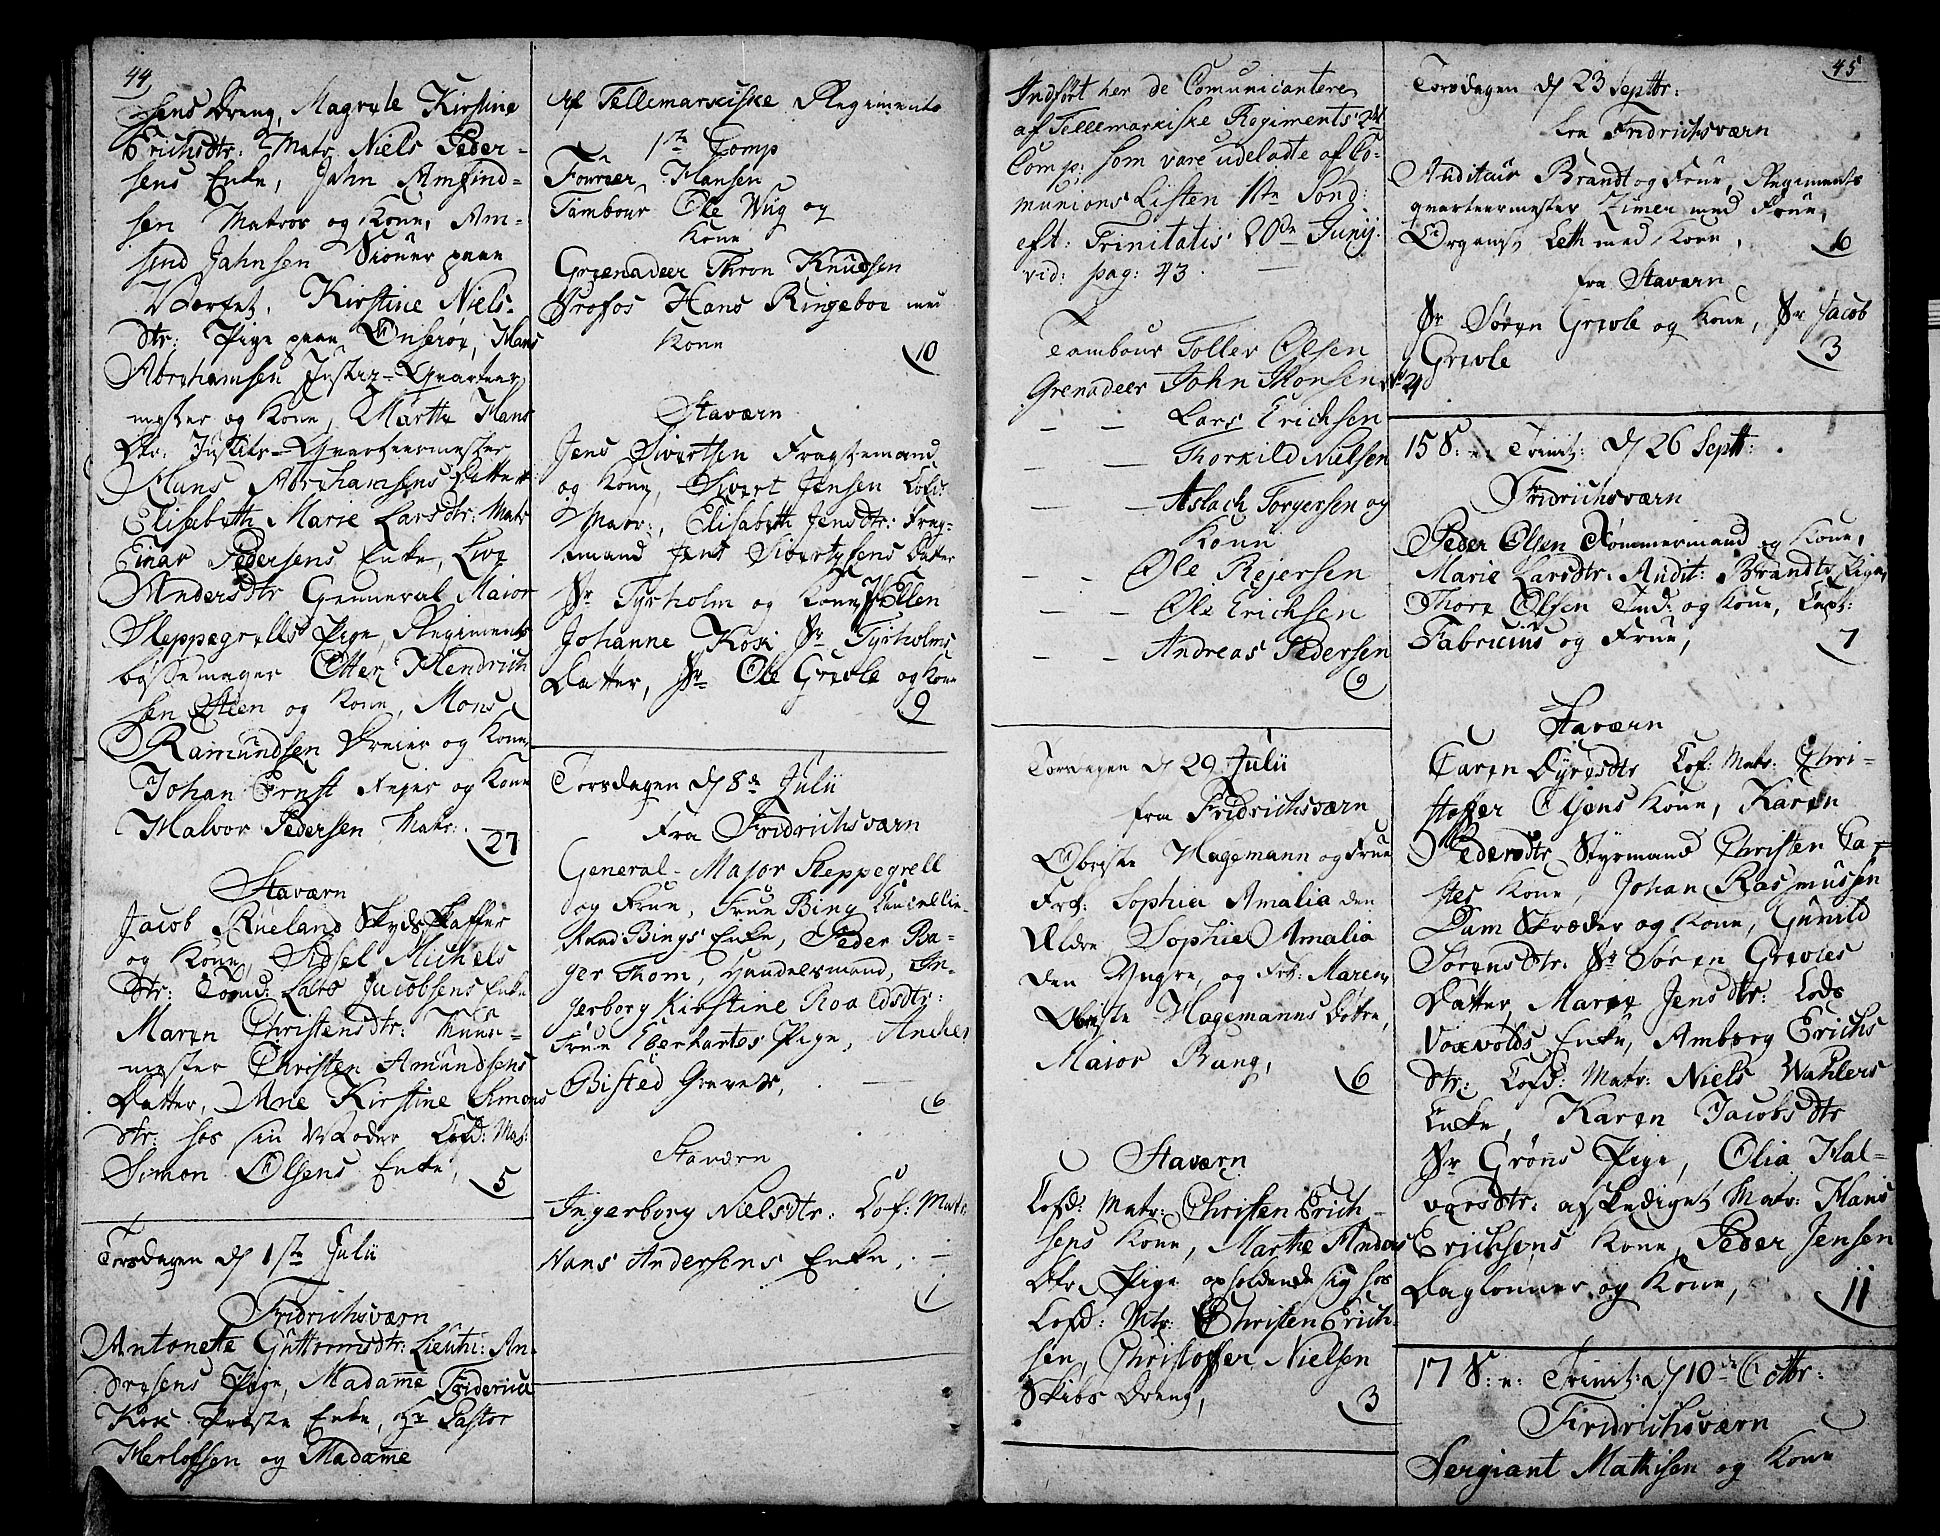 44
sens Dreng, Magrete Kirstine
Erichsdtr: Matr. Niels Peder-
sens Enke, Jahn Amfind-
sen Matros og Kone, Am-
find Jahnsen paa
Værfet, Kirstine Niels-
dtr: Pige paa, Hans
Abrahamsen Justiz-Qvarteer
mester og Kone, Marthe Hans
Dtr: Justits-Qvarteermester
Hans Abrahamsens Datter
Elisabeth Marie Larsdtr: Matr
Einar Pedersens Enke, Live
Andersdtr Genneral Maior
Sleppegrells Pige, Regiments
bøssemager Otter Hendrich
sen Stien og Kone, Mons
Ramundsen Dreier og Kone
Johan Ernst og Kone
Halvor Pedersen Matr:
27
Staværn
Jacob Rueland Skydsskaffer
og Kone, Sidsel Michels
dtr: Tømd: Lars Jacobsens Enke
Maren Christensdtr: Muur-
mester Christen Amundsens
Datter, Ane Kirstine Simons
dtr: hos sin Moder Lofd: Mat:
Simon Olsens Enke,
5
Torsdagen d 1ste Julii
Fridrichsværn
Antonette Guttormsdtr: Lieutn: An-
dresens Pige, Madame Friderica
Kok Præste Enke, Hr Pastor
Herlofsen og Madame
Af Tellemarkiske Regiments
1ste Comp
Fourier Hansen
Tambour Ole Wug og
Kone
Grenadeer Thron Knudsen
Profos Hans Ringeboe med
Kone
10
Staværn
Jens Sivertsen Fragtemand
og Kone, Sivert Jensen Lofd:
Matr:, Elisabeth Jensdtr: Frag-
temand Jens Sivertsens Datter
Sr Tyrholm og Kone, Ellen
Johanne Kock Sr Tyrholms
Datter, Sr Ole Grevle og Kone
9
Torsdagen d 8de Julii
Fra Fridrichsværn
General-Major Sleppegrell
og Frue, Frue Bing Cancellie-
Raad Bings Enke, Peder Ba-
ger Thom, Handelsmand, In-
gerborg Kirstine Roaldsdtr:
Frue Eberhartes Pige, Anders
Bisted Graver,
6
Staværn
Ingerborg Nielsdtr: Lof: Matr.
Hans Andersens Enke,
1
Indført her de Comunicantere
af Tellemarkiske Regiments 2det
Comp: som vare udeladte af Co-
munions Listen 1ste Sønd:
eft: Trinitatis 20de Junij
vid: pag: 43.
Tambour Tollev Olsen
Grenadeer John Thorsen No 21
— — Lars Erichsen
— — Thorkild Nielsen
— — Aslach Torgersen og
Kone
— — Ole Rejersen
— — Ole Erichsen
— — Andreas Pedersen
9
Torsdagen d 29 Julii
fra Fridrichsværn
Obriste Hagemann og Frue
Frk: Sophia Amalia den
Ældre Sophie Amalia
den Yngre, og Frk: Maren,
Obriste Hagemanns Døtre,
Maior Bang,
6
Staværn
Lofd: Matr: Christen Erich-
sens Kone, Marthe Anders
Dtr Pige opholdende sig hos
Lofd: Mtr: Christen Erich-
sen, Christoffer Nielsen
Skibs Dreng,
3
45
Torsdagen d 23 Septbr:
fra Fridrichsværn
Auditeur Brandt og Frue, Regiments
qvarteermester Zimer med Frue,
Organist Leth med Kone,
6
fra Staværn
Sr Søren Grevle og Kone, Sr Jacob
Grevle
3
15 S: e: Trinit: d 26 Septbr:
Fridrichsværn
Peder Olsen Tømmermand og Kone,
Marie Larsdtr: Audit: Brandts Pige,
Thore Olsen Tmd: og Kone, Capt:
Fabricius og Frue,
7
Staværn
Caren Dyresdtr Lof: Matr: Chri-
stoffer Olsens Kone, Karen
Pedersdtr Styrmand Christen Ca-
stes Kone, Johan Rasmussen
Dam Skræder og Kone, Gunild
Sørensdtr: Sr Søren Grevles
Datter, Marie Jensdtr: Lods
Voxvolds Enke, Amborg Erichs
dtr: Lofd: Matr: Niels Wahlers
Enke, Karen Jacobsdtr
Sr Grøns Pige, Olia Hal-
vorsdtr: afskediget Matr: Hans
Erichsens Kone, Peder Jensen
Daglønner og Kone,
11
17 S: e: Trinit: d 10de Octbr:
Fridrichsværn
Sergiant Mathisen og Kone